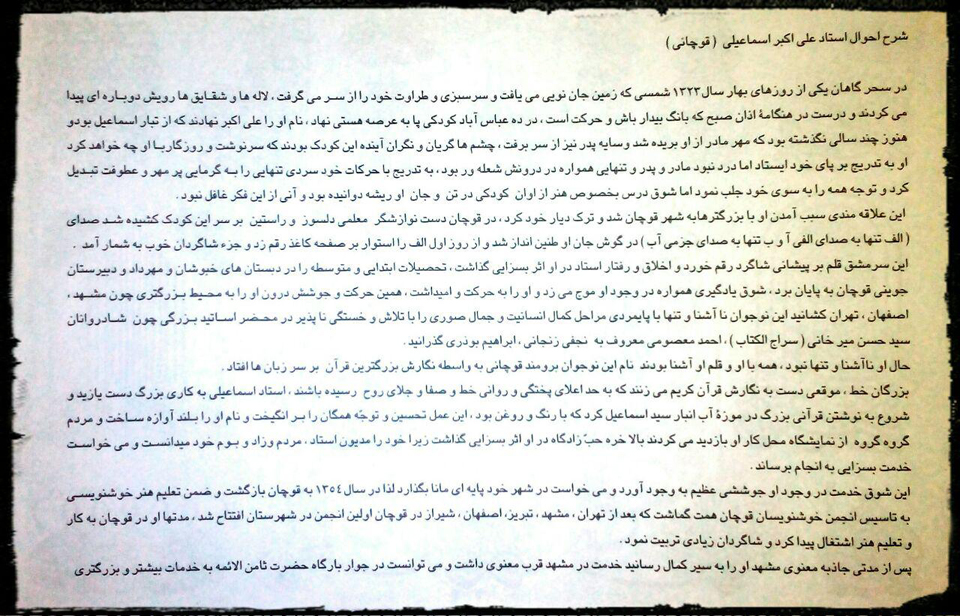 شرح احوال استاد علی اکبر اسماعیلی ( قوچانی )
در سحر گاهان یکی از روزهای بهار سال ۱۳۲۳ شمسی که زمین جان نویی می یافت و سرسبزی و طراوت خود را از سر می گرفت ، لاله ها و شقایق ها رویش دوباره ای پیدا
می کردند و درست در هنگامهٔ اذان صبح که بانگ بیدار باش و حرکت است ، در ده عباس آباد کودکی پا به عرصه هستی نهاد ، نام او را علی اکبر نهادند که از تبار اسماعیل بود و
هنوز چند سالی نگذشته بود که مهر مادر از او بریده شد و سایه پدر نیز از سر برفت ، چشم ها گریان و نگران آینده این کودک بودند که سرنوشت و روزگار با او چه خواهد کرد
او به تدریج بر پای خود ایستاد اما درد نبود مادر و پدر و تنهایی همواره در درونش شعله ور بود ، به تدریج با حرکات خود سردی تنهایی را به گرمایی پر مهر و عطوفت تبدیل
کرد و توجه همه را به سوی خود جلب نمود اما شوق درس بخصوص هنر از اوان کودکی در تن و جان او ریشه دوانیده بود و آنی از این فکر غافل نبود .
این علاقه مندی سبب آمدن او با بزرگترها به شهر قوچان شد و ترک دیار خود کرد ، در قوچان دست نوازشگر معلمی دلسوز و راستین بر سر این کودک کشیده شد صدای
( الف تنها به صدای الفی آ و ب تنها به صدای جزمی آب ) در گوش جان او طنین انداز شد و از روز اول الف را استوار بر صفحه کاغذ رقم زد و جزء شاگردان خوب به شمار آمد .
این سرمشق قلم بر پیشانی شاگرد رقم خورد و اخلاق و رفتار استاد در او اثر بسزایی گذاشت ، تحصیلات ابتدایی و متوسطه را در دبستان های خبوشان و مهرداد و دبیرستان
جوینی قوچان به پایان برد ، شوق یادگیری همواره در وجود او موج می زد و او را به حرکت وامیداشت ، همین حرکت و جوشش درون او را به محیط بزرگتری چون مشهد ،
اصفهان ، تهران کشانید این نوجوان نا آشنا و تنها با پایمردی مراحل کمال انسانیت و جمال صوری را با تلاش و خستگی نا پذیر در محضر اساتید بزرگی چون شادروانان
سید حسن میر خانی ( سراج الکتاب ) ، احمد معصومی معروف به نجفی زنجانی ، ابراهیم بوذری گذرانید .
حال او ناآشنا و تنها نبود ، همه با او و قلم او آشنا بودند نام این نوجوان برومند قوچانی به واسطه نگارش بزرگترین قرآن بر سر زبان ها افتاد .
بزرگان خط ، موقعی دست به نگارش قرآن کریم می زنند که به حد اعلای پختگی و روانی خط و صفا و جلای روح رسیده باشند ، استاد اسماعیلی به کاری بزرگ دست یازید و
شروع به نوشتن قرآنی بزرگ در موزهٔ آب انبار سید اسماعیل کرد که با رنگ و روغن بود ، این عمل تحسین و توجّه همگان را بر انگیخت و نام او را بلند آوازه ساخت و مردم
گروه گروه از نمایشگاه محل کار او بازدید می کردند بالا خره حبّ زادگاه در او اثر بسزایی گذاشت زیرا خود را مدیون استاد ، مردم وزاد و بوم خود میدانست و می خواست
خدمت بسزایی به انجام برساند .
این شوق خدمت در وجود او جوششی عظیم به وجود آورد و می خواست در شهر خود پایه ای مانا بگذارد لذا در سال ۱۳۵۴ به قوچان بازگشت و ضمن تعلیم هنر خوشنویسی
به تاسیس انجمن خوشنویسان قوچان همت گماشت که بعد از تهران ، مشهد ، تبریز، اصفهان ، شیراز در قوچان اولین انجمن در شهرستان افتتاح شد ، مدتها او در قوچان به کار
و تعلیم هنر اشتغال پیدا کرد و شاگردان زیادی تربیت نمود .
پس از مدتی جاذبه معنوی مشهد او را به سیر کمال رسانید خدمت در مشهد قرب معنوی داشت و می توانست در جوار بارگاه حضرت ثامن الائمه به خدمات بیشتر و بزرگتری